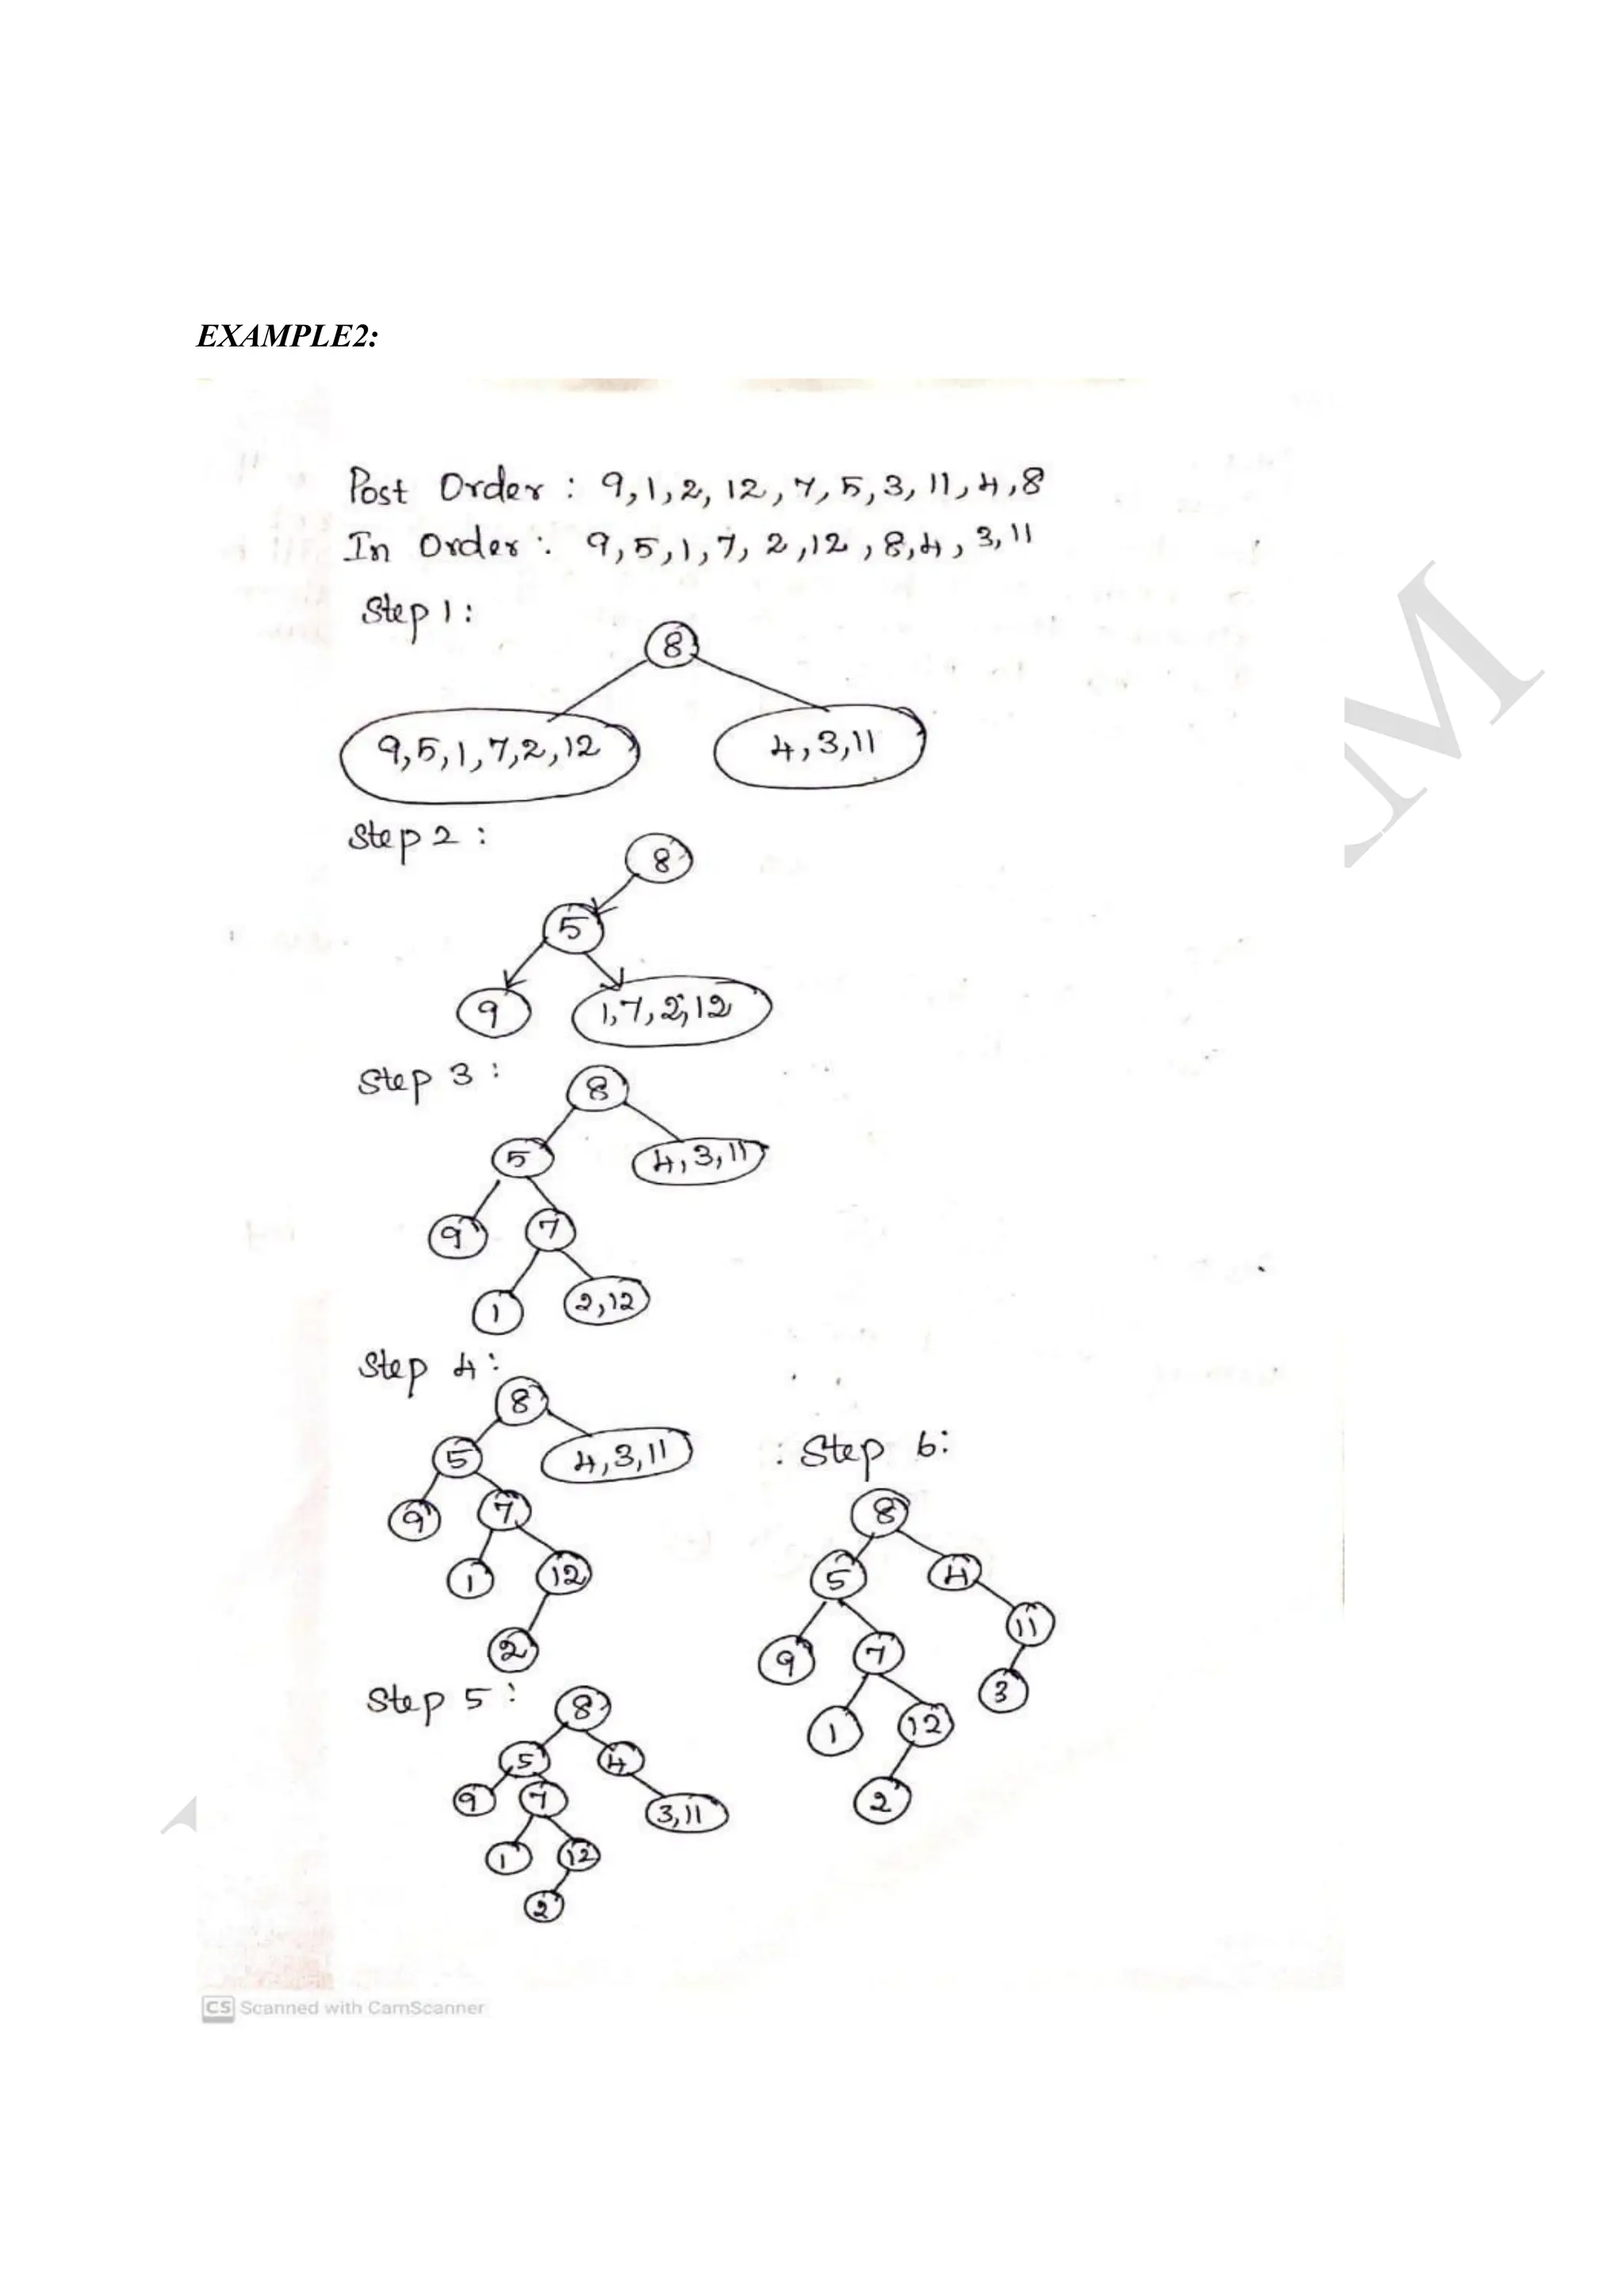 EXAMPLE2:
Post Order : 9,1,2, 12,7,5,3, 11,4,8
In Order : 9,5,1,7, 2,12,8,4,3,11
Step 1:
8
9,5,1,7,2,12 4,3,11
Step 2:
8
5
9 1,7,2,12
Step 3:
8
5 4,3,11
9 7
1 2,12
Step 4:
8
5 4,3,11
9 7
1 12
2
Step 5:
8
5 4
9 7 3,11
1 12
2
Step 6:
8
5 4
11
9 7 3
1 12
2
M
CS Scanned with CamScanner